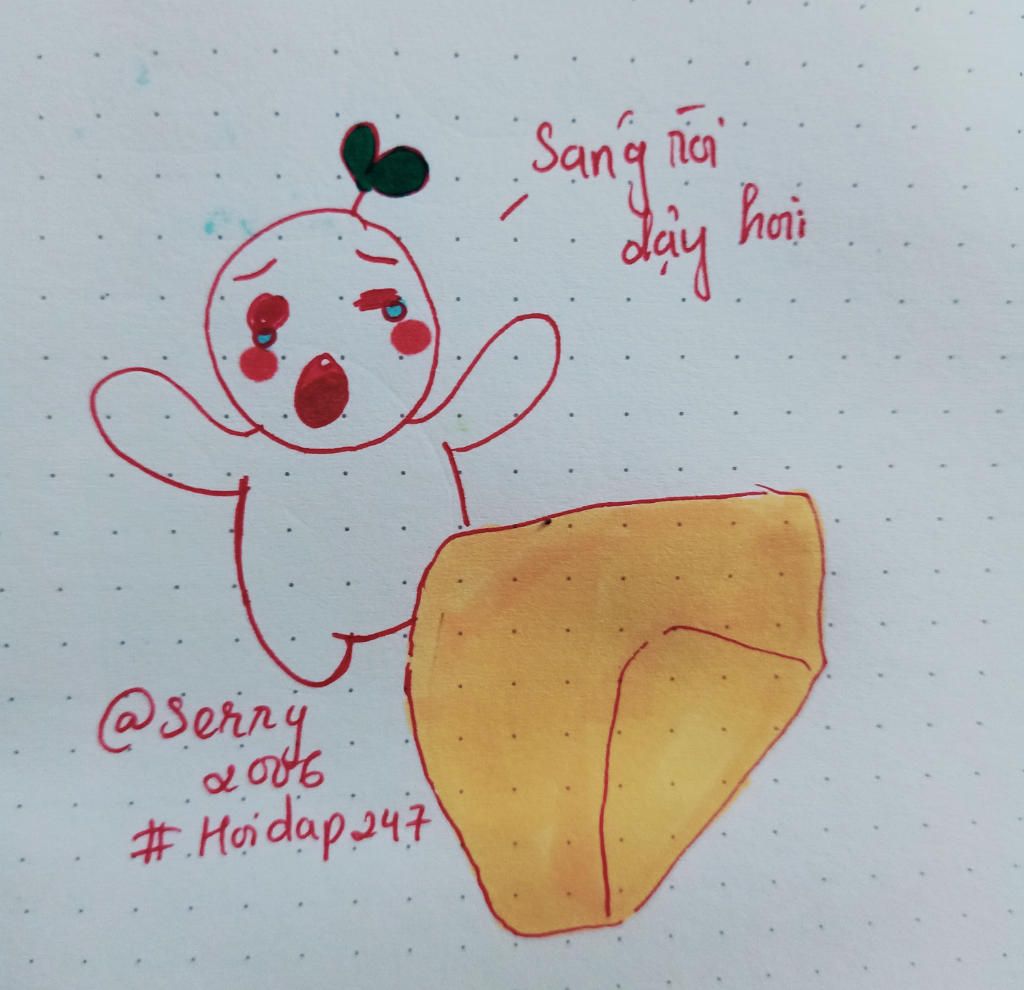 Sańg rồi
dậy hơii
@serry
2006
# Hoidap247